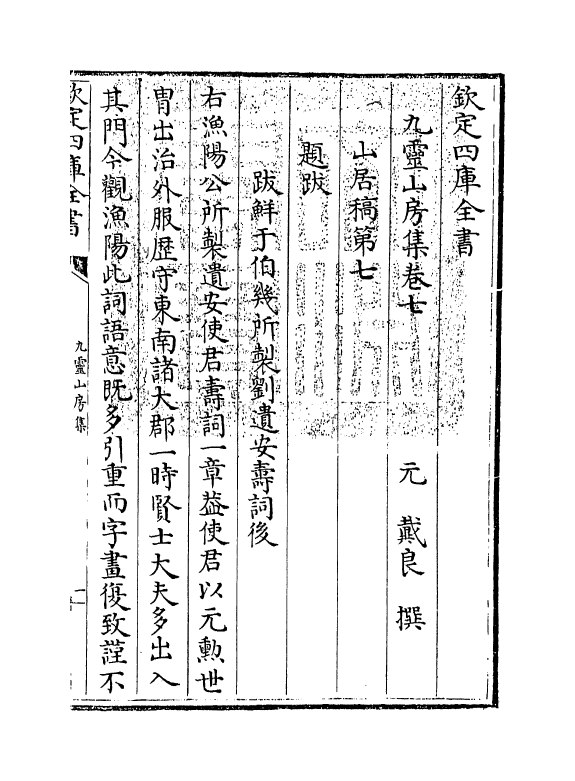 欽定四庫全書
九靈山房集卷七
元 戴良 撰
山居稿第七
題跋
跋鮮于伯幾所製劉遺安壽詞後
右漁陽公所製遺安使君壽詞一章葢使君以元勲世
胄出治外服歴守東南諸大郡一時賢士大夫多出入
其門今觀漁陽此詞語意既多引重而字畫復致謹不
欽定四庫全書
九靈山房集